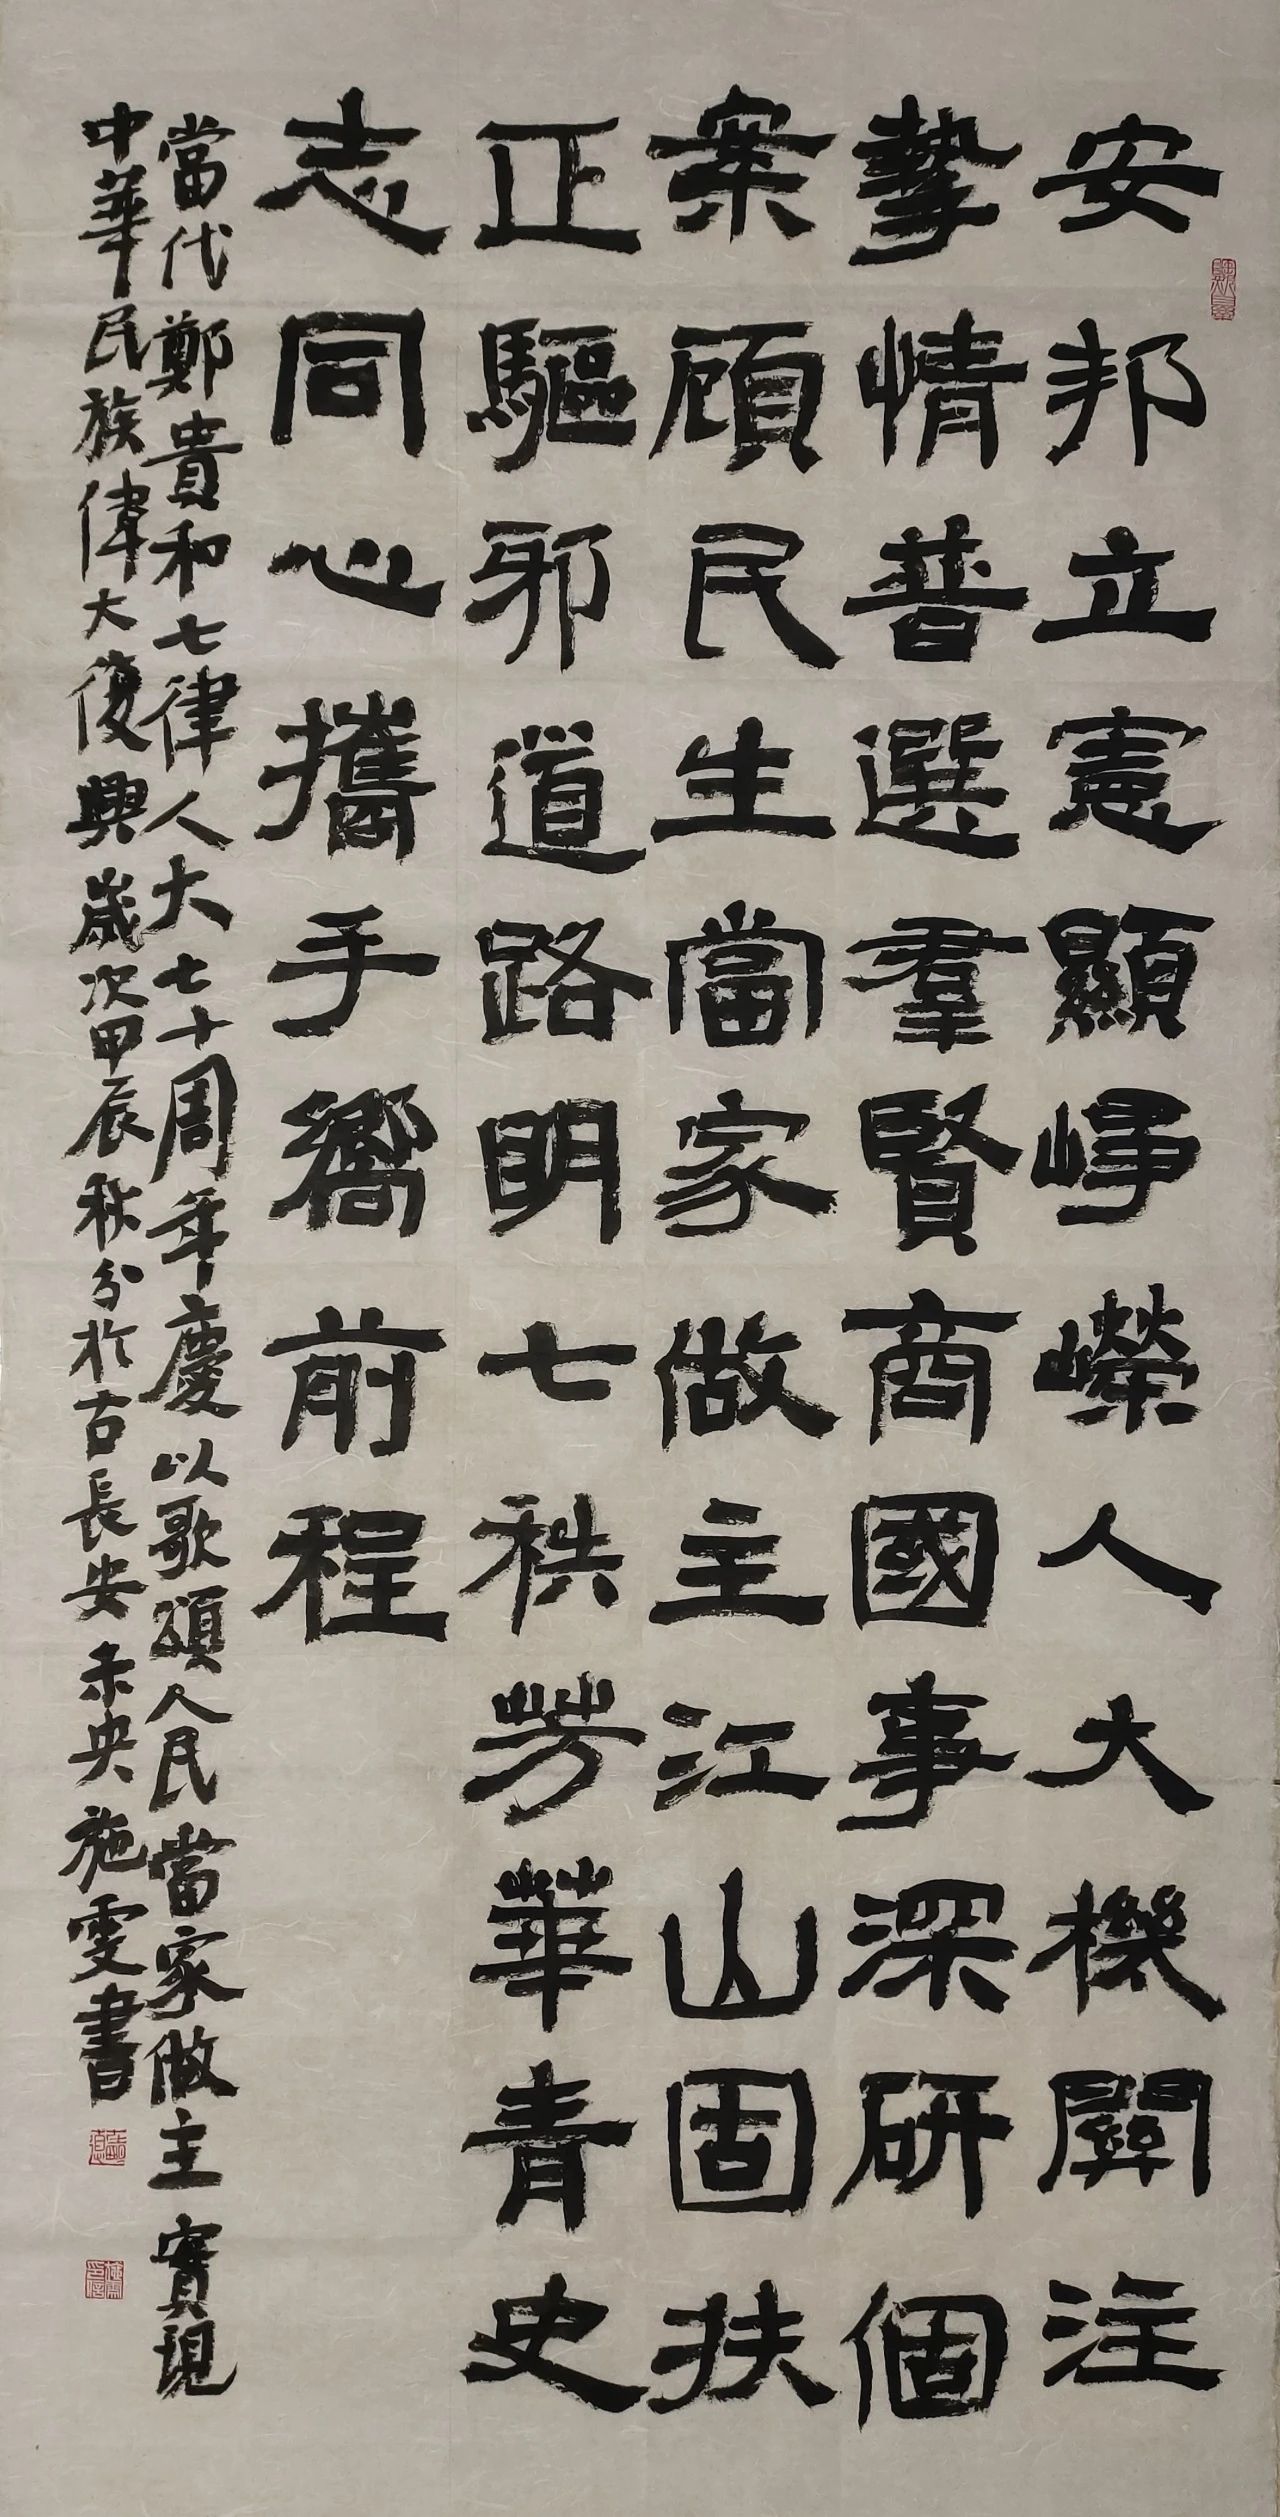 安邦立憲顯崢嶸人大機關注
摯情普選羣賢商國事深研個
案顧民生當家做主江山固扶
正驅邪道路明七秩芳華青史
志同心攜手嚮前程
當代鄭貴和七律人大七十周年慶以歌頌人民當家做主實現
中華民族偉大復興歲次甲辰秋分於古長安未央施雯書